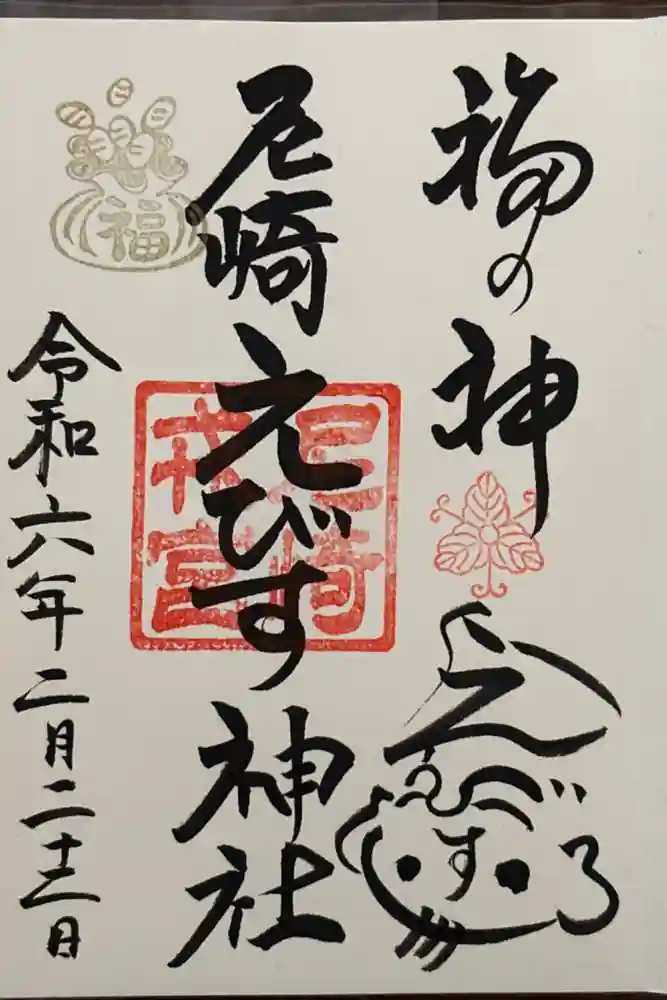 福の神
えびす
尼崎えびす神社
尼崎
戎宮
福
令和六年二月二十三日